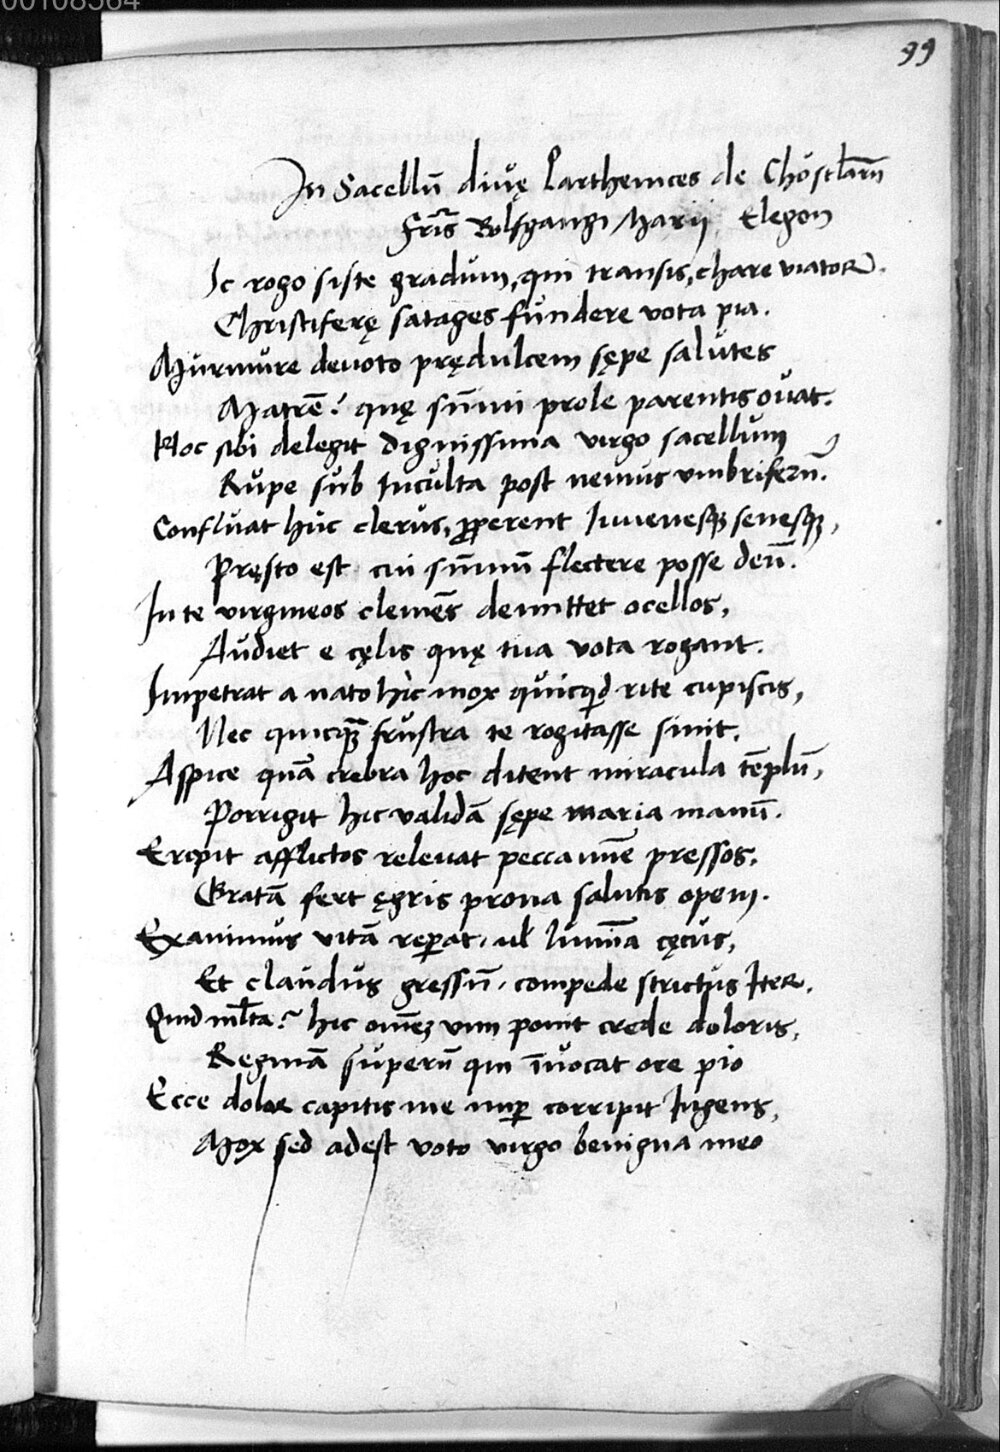 00108564
99
In Sacellū diuę Parthenices de Chöstlarn
Fris Bolfgangi Marij Elegon
Ic rogo siste gradum, qui transis, chare viator.
Christiferę satages fundere vota pia.
Murmure deuoto prędulcem sępe salutes
Matrē? quę sūmi prole parentis ouat.
Hoc sibi delegit dignissima virgo sacellum
Rupe sub Inculta post nemus vmbriferū.
Confluat huc clerus, ꝓperent Iuuenesqꝫ senesqꝫ,
Pręsto est cui sūmū flectere posse deū.
In te virgineos clemēs demittet ocellos,
Audiet e cęlis quę tua vota rogant.
Impetrat a nato hic mox quicqd rite cupiscis,
Nec quicqꝫ frustra te rogitasse sinit.
Aspice quā crebra hoc ditent miracula tēplū,
Porrigit hic validā sępe maria manū.
Eripit afflictos releuat peccamīe pressos,
Gratā fert ęgris prona salutis opem.
Exanimus vitā reꝑat, ul lumīa cęcus,
Et claudus gressū, compede strictus Iter.
Quid mlta? hic omēꝫ vim ponit crede doloris,
Reginā superū qui īuocat ore pio
Ecce dolor capitis me nuꝑ corripit Ingens,
Mox sed adest voto virgo benigna meo